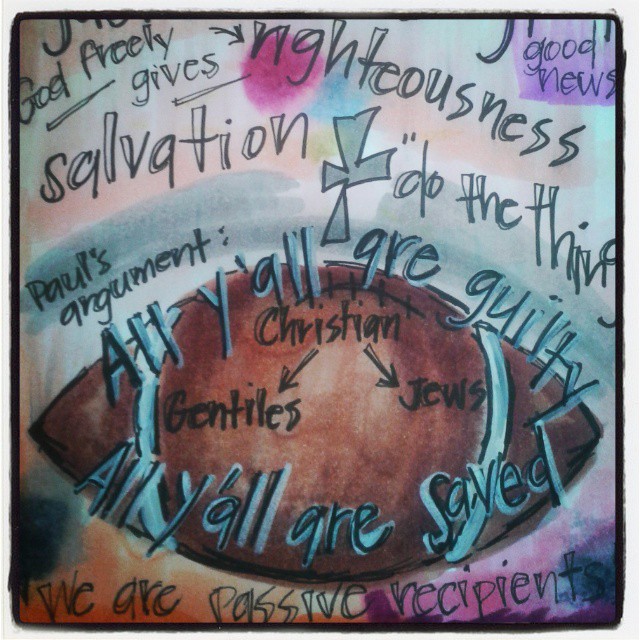 God freely gives
righteousness
good news
salvation
"do the thing
Paul's argument:
All y'all are guilty
Christian
Gentiles
Jews
All y'all are saved
we are passive recipients